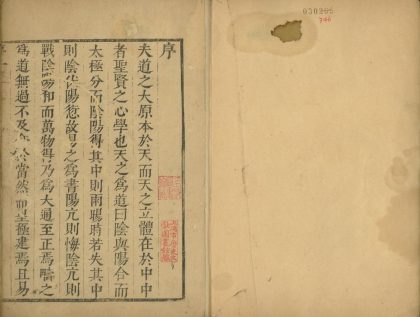 030205
序
夫道之大原本於天而天之立體在於中中
者聖賢之心學也天之為道曰陰與陽合而
太極分而陰陽得其中則雨暘時若失其中
則陰 陽愆故易之為書陽亢則悔陰亢則
戰陰陽和而萬物得乃為大通至正焉疇之
為道無過不及 於當然 極建焉且易